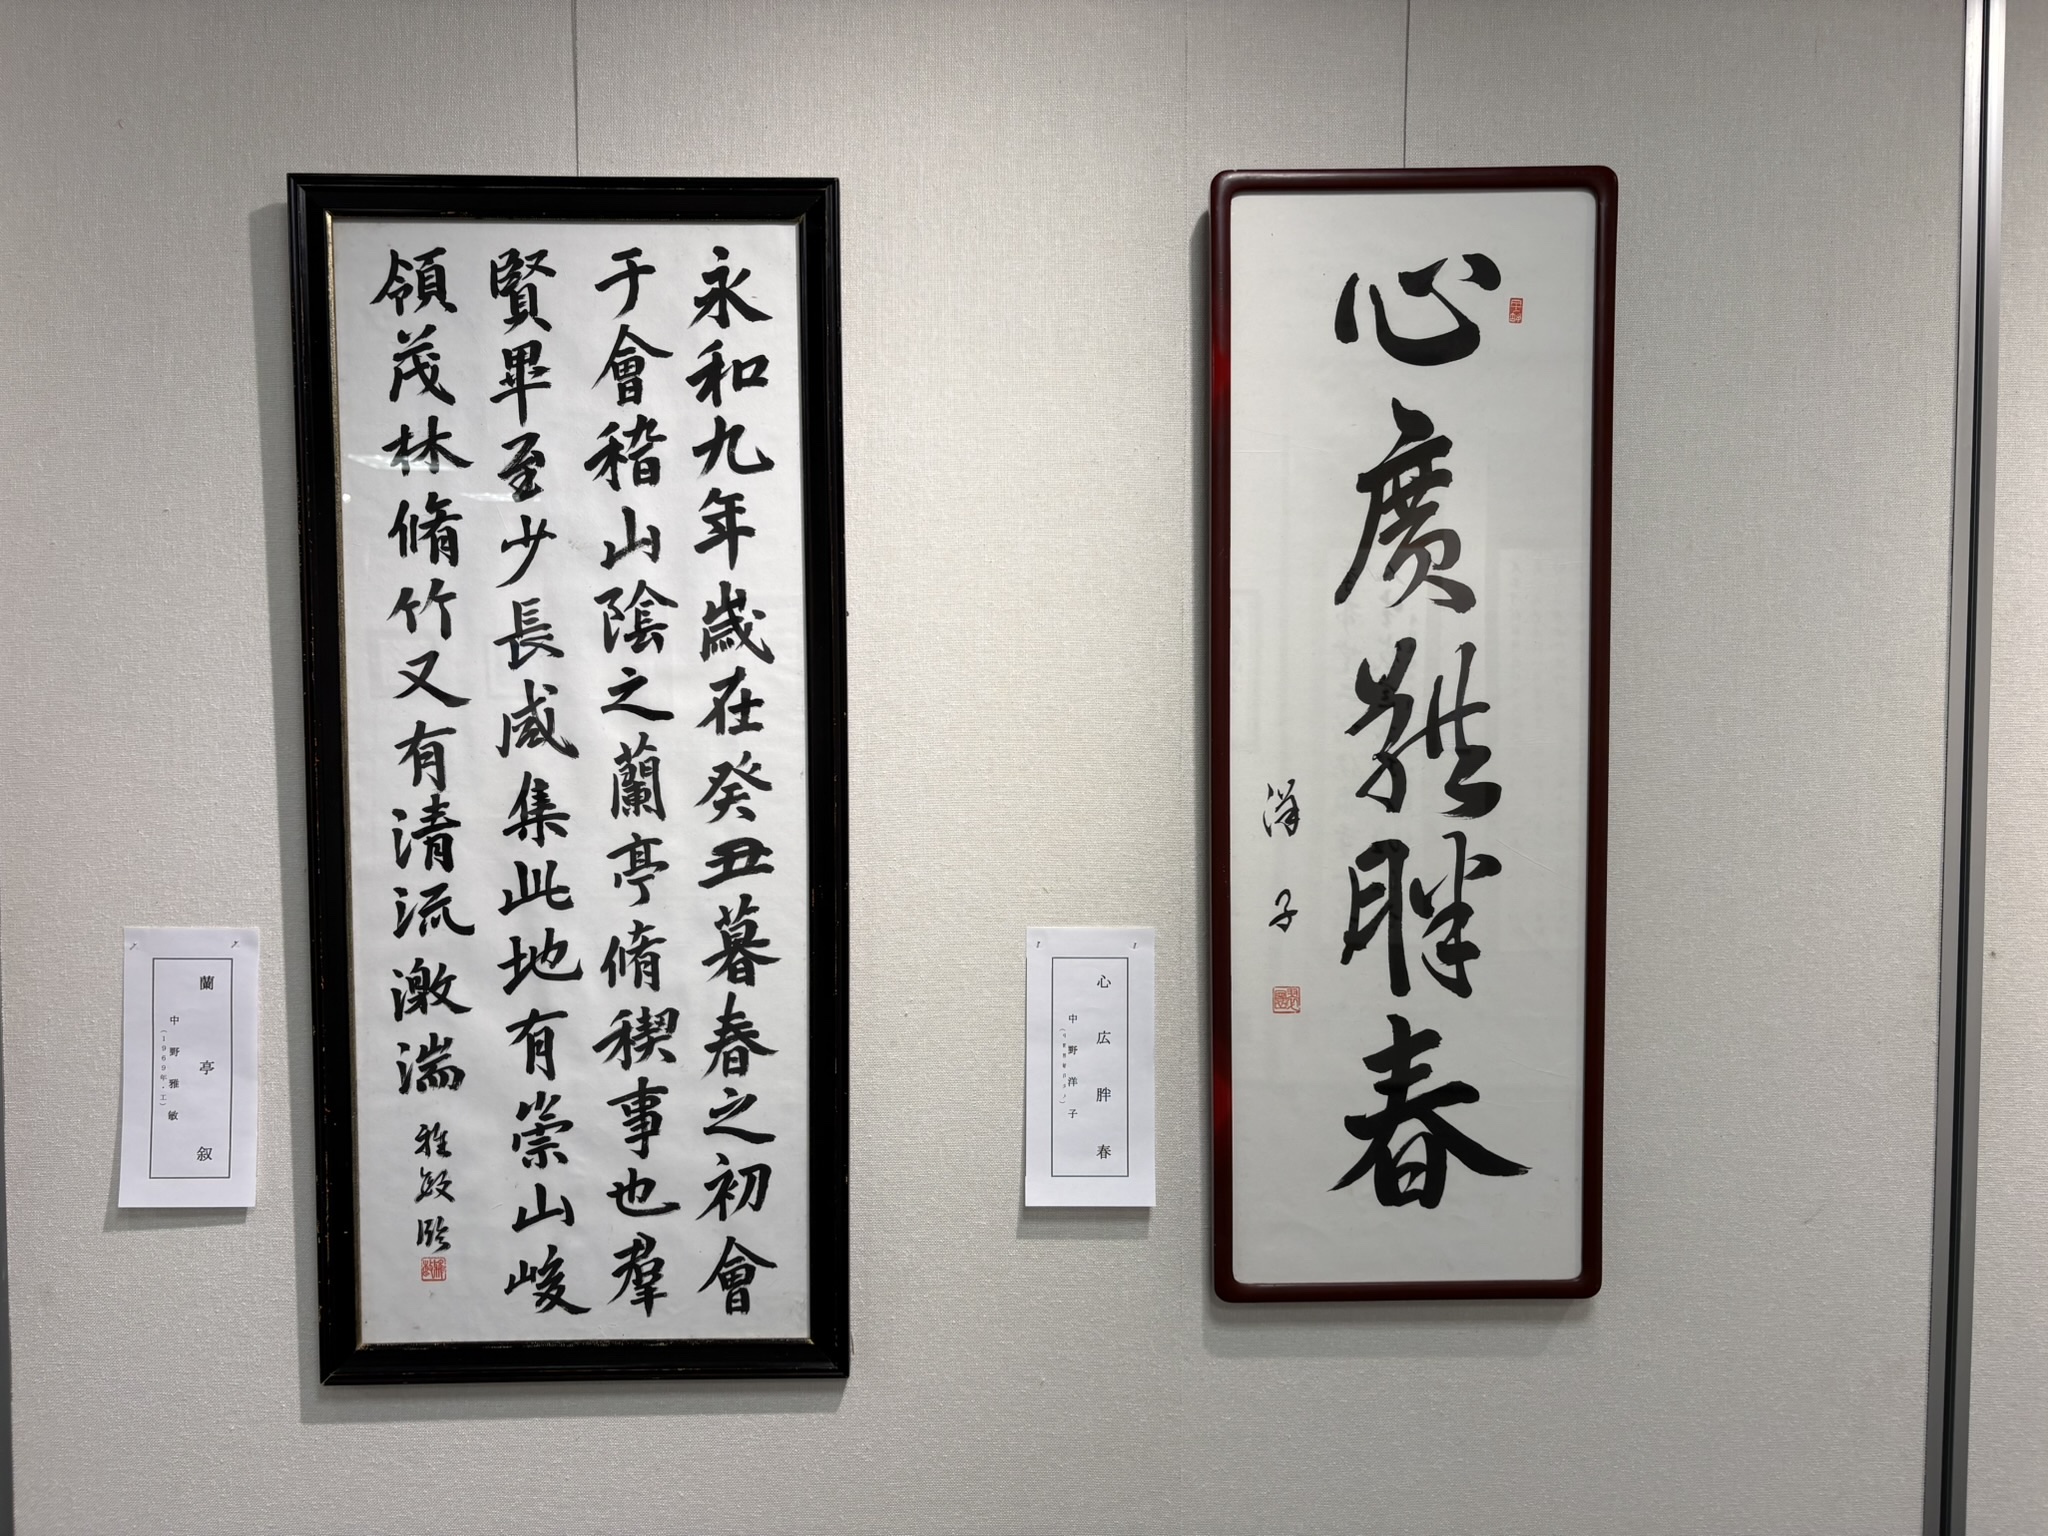 蘭亭叙
中野雅敏
(1969年・工)
永和九年歳在癸丑暮春之初會
于會稽山陰之蘭亭脩稧事也羣
賢畢至少長咸集此地有崇山峻
領茂林脩竹又有清流激湍
雅敏臨
心広胖春
中野洋子
心廣體胖春
洋子